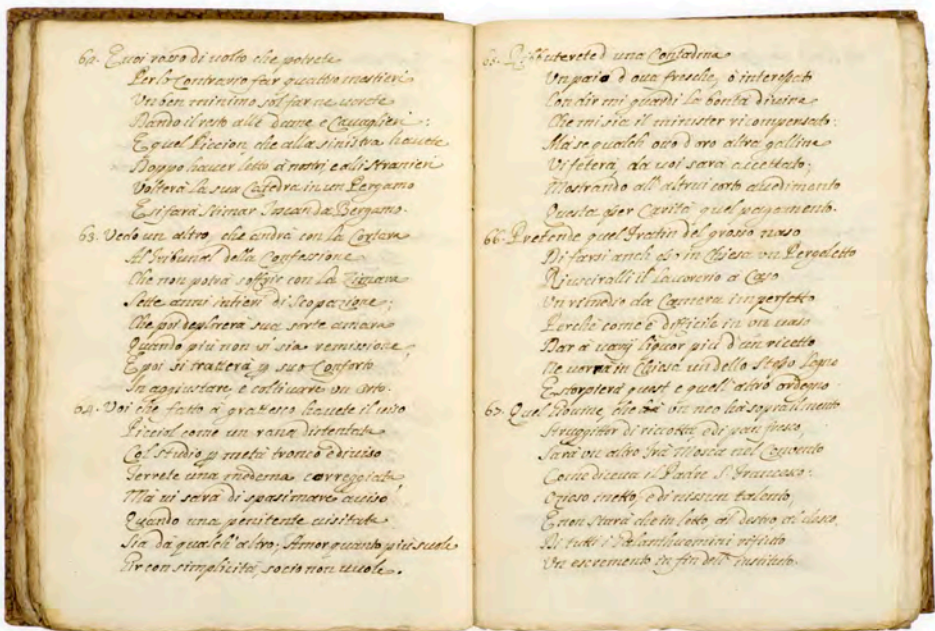 62. E voi roseo di volto che potrete
Per lo Contrario far quattro mestieri
Un ben minimo sol far ne verete
Dando il resto alle dame e Cavaglieri:
E quel Piccion, che alla sinistra havete
Doppo haver letto à nostri, e alli stranieri
Volterà la sua Catedra in un Pergamo
E si farà stimar Bergamo.
63. Vedo un altro, che andrà con la
Al Tribunal della Confessione
Che non potrà soffrir con la Zimara
Sette anni intieri di Scopazione;
Che poi deplorerà sua sorte amara
Quando più non vi sia remissione,
E poi si tratterà p suo Conforto
In aggiustare, e coltivare un orto.
64. Voi che fatto à grottesco havete il viso
Picciol come un rana
Col studio p metà tronco e diviso
Terrete una medema carreggiata,
Mà vi sarà di spasimare aviso
Quando una penitente visitata
Sia da qualch' altro; Amor quanto più suole
Pur con simplicità, socio non vuole.
65. Ributterete d'una Contadina
Un paio d'ova fresche, ò interessato
Con dir mi guardi la bontà divina
Che mi sia il minister ricompensato:
Mà se qualch' ovo d'oro altra gallina
Vi feterà, da voi sarà accettato;
Mostrando all' altrui corto avedimento
Questa per Carità quel pagamento.
66. Pretende quel Fratin del grosso naso
Di farsi anch' esso in Chiesa un Pergoletto
Riusciralli il lavorerio à Caso
Un rimedio da Camera imperfetto
Perche come è difficile in un vaso
Dar à varij liquor più d'un ricetto
Ne verrà in Chiesa un dello stesso legno
E storpierà quest' e quell' altro ordegno
67. Quel Giovine, che hà un neo hà sopra il mento
di riccotta, e di pan fresco,
Sarà un altro frà Mosca nel Convento
Come diceva il Padre S. Francesco:
Ozioso inetto, e di nissun talento,
E non starà che in letto, al destro, al desco,
Di tutti i Galanthuomini rifiuto
Un escremento in fin dell' instituto.